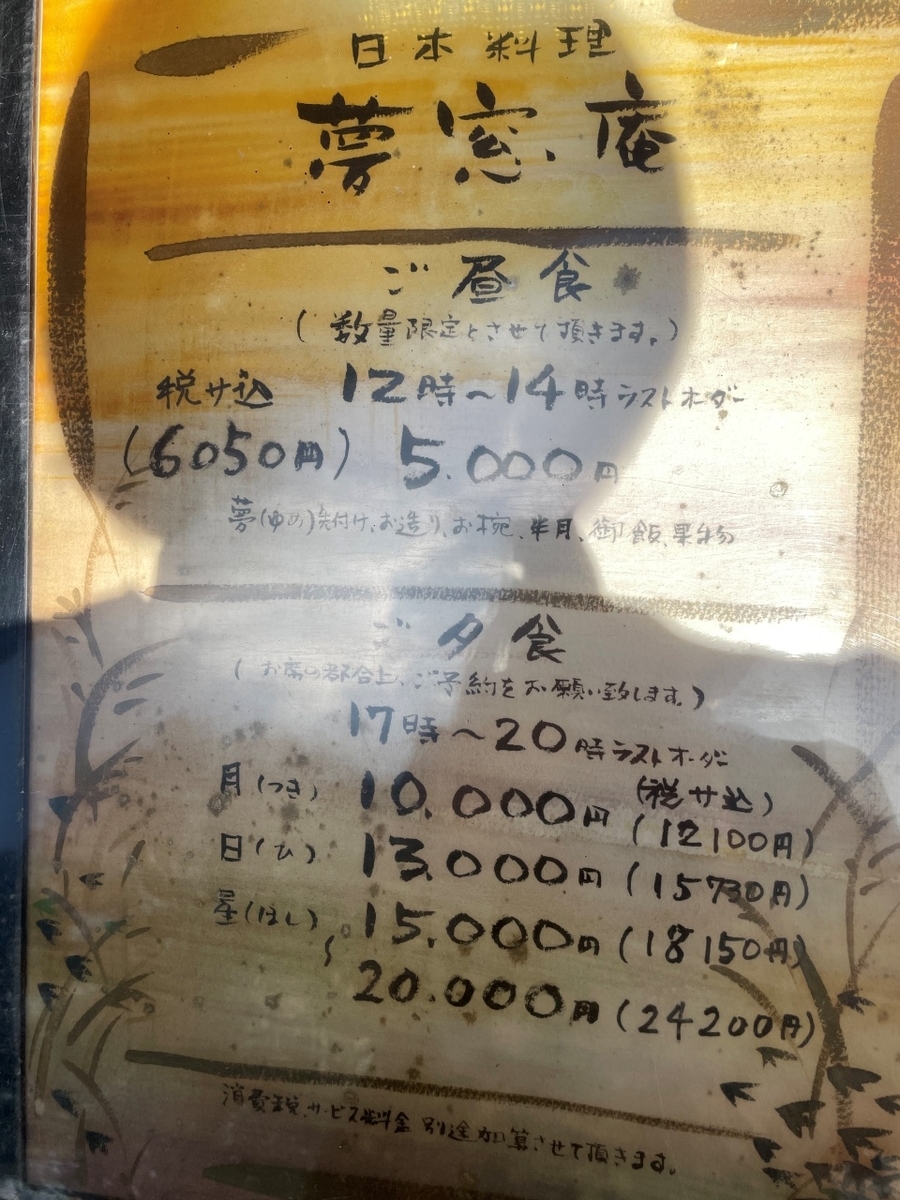 日本料理
夢窓庵
ご昼食
(数量限定とさせて頂きます。)
税サ込 12時~14時ラストオーダー
(6050円) 5.000円
夢(ゆめ)先付け、お造り、お椀、半月、御飯、果物
ご夕食
(お席の都合上、ご予約をお願い致します。)
17時~20時ラストオーダー
月(つき) 10.000円 (税サ込)
(12100円)
日(ひ) 13.000円 (15730円)
星(ほし) 15.000円 (18150円)
~ 20.000円 (24200円)
消費税、サービス料金 別途加算させて頂きます。